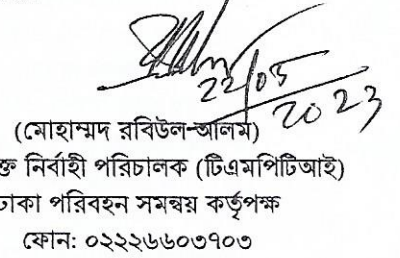 22/05
2023
(মোহাম্মদ রবিউল-আলম)
ক্ত নির্বাহী পরিচালক (টিএমপিটিআই)
ঢাকা পরিবহন সমন্বয় কর্তৃপক্ষ
ফোন: ০২২২৬৬০৩৭০৩